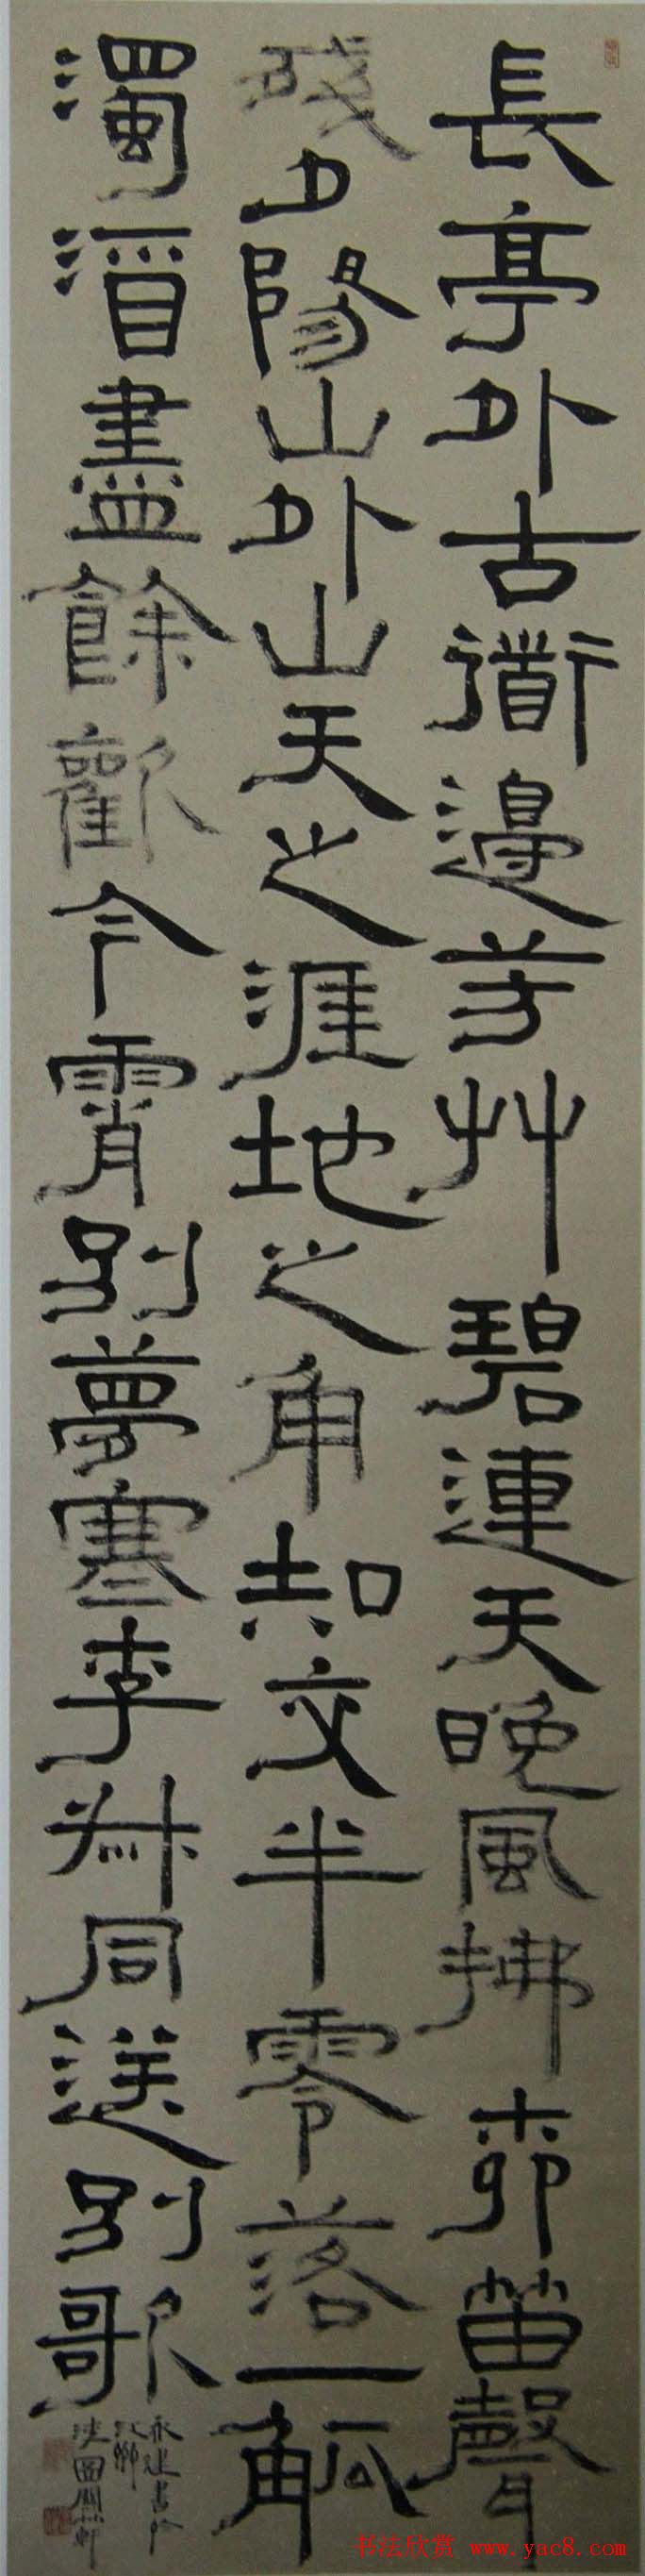 長亭外古衜邊芳艸碧連天晚風拂桺笛聲
殘夕陽山外山天之涯地之角知交半零落一觚
濁酒盡餘歡今霄別夢寒李叔同送別歌
永建書於
书法欣赏 www.yac8.com